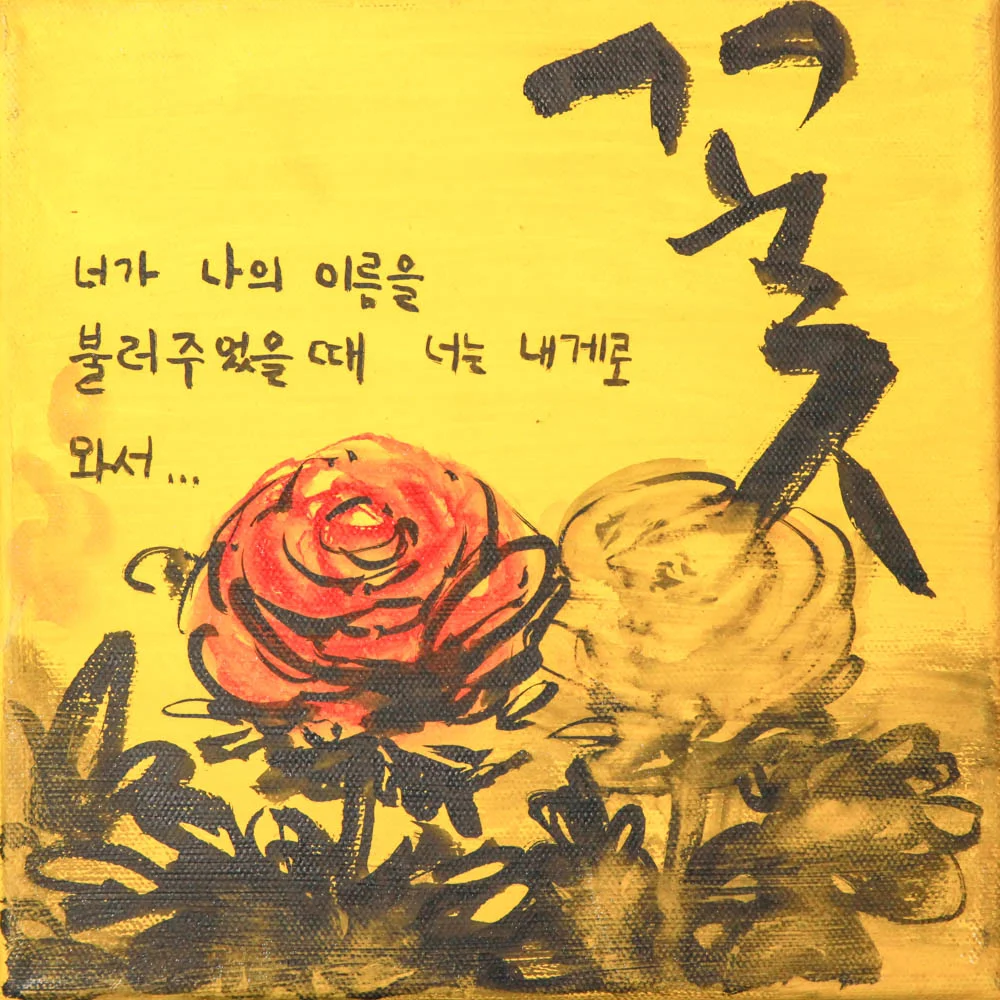 꽃
너가 나의 이름을
불러주었을때 너는 내게로
와서...